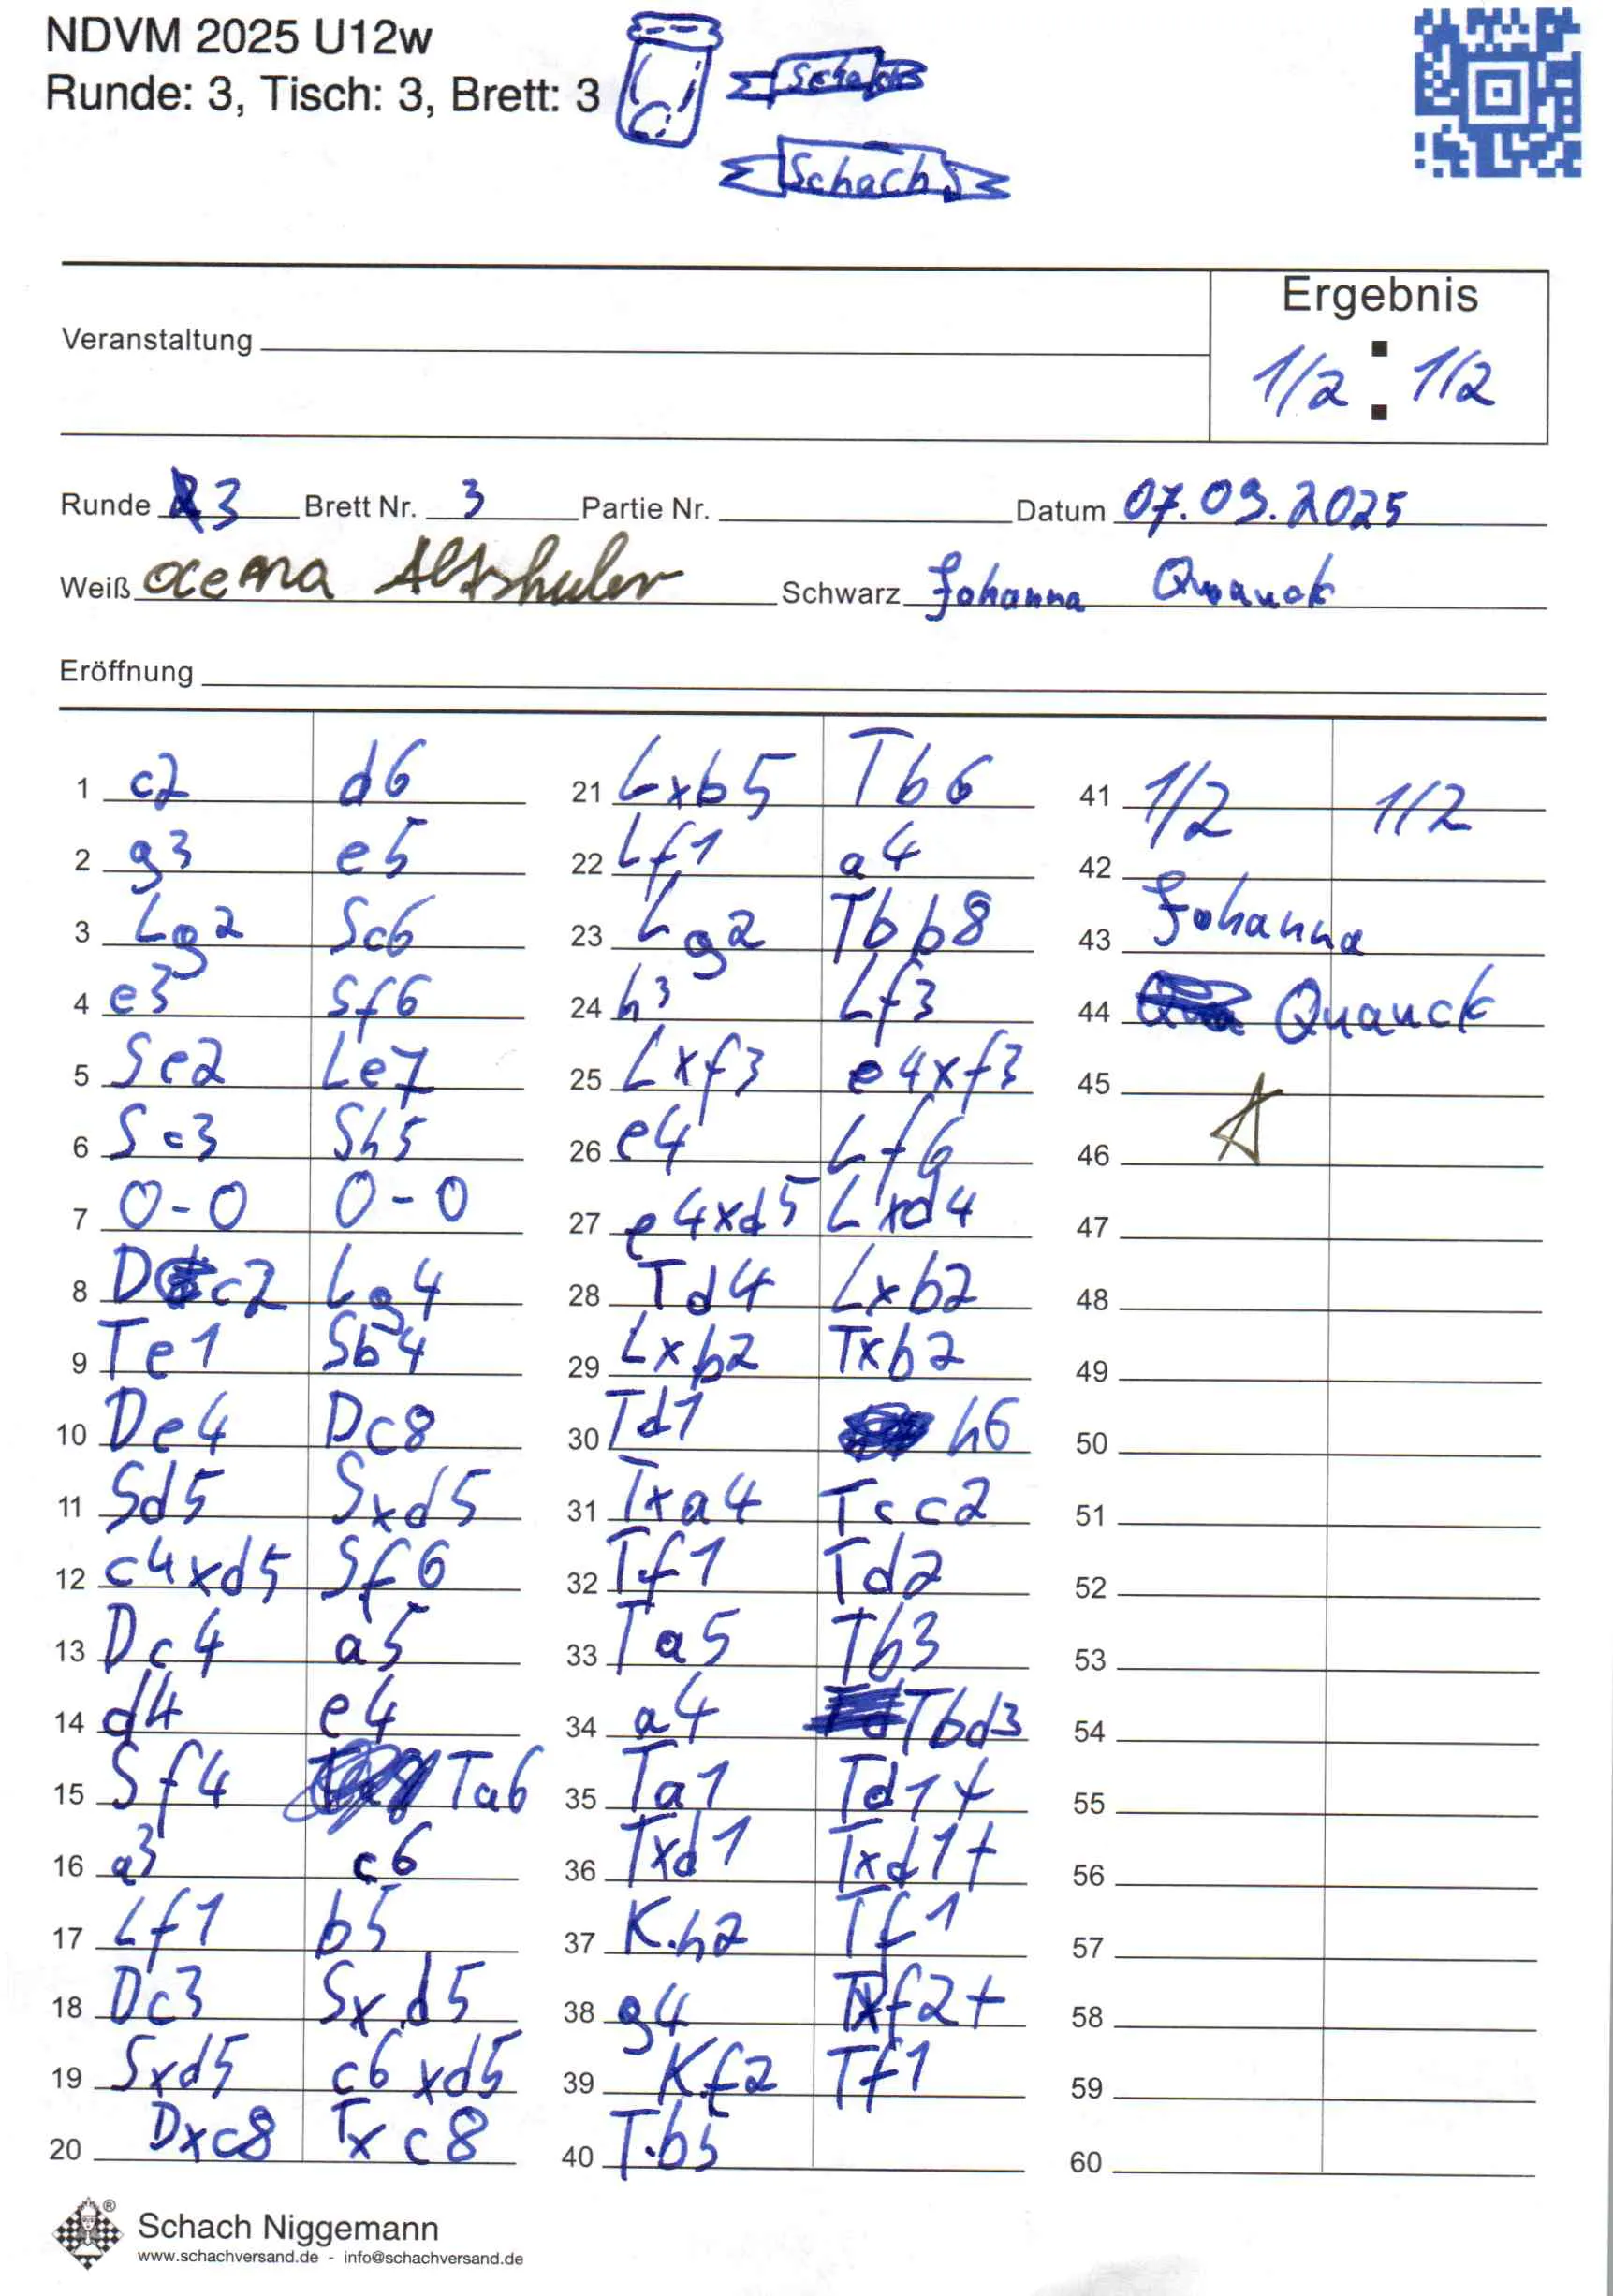 NDVM 2025 U12w
Runde: 3, Tisch: 3, Brett: 3
Schach
Schach
Ergebnis
Veranstaltung
1/2 : 1/2
Runde 3 Brett Nr. 3 Partie Nr. Datum 07.09.2025
Weiß Schwarz Johanna Quauck
Eröffnung
1 c2 d6
2 g3 e5
3 Lg2 Sc6
4 e3 Sf6
5 Se2 Le7
6 Sc3 Sh5
7 0-0 0-0
8 Dc2 Lg4
9 Te1 Sb4
10 De4 Dc8
11 Sd5 Sxd5
12 c4xd5 Sf6
13 Dc4 a5
14 d4 e4
15 Sf4 Ta6
16 a3 c6
17 Lf1 b5
18 Dc3 Sxd5
19 Sxd5 c6xd5
20 Dxc8 Txc8
21 Lxb5 Tb6
22 Lf1 a4
23 Lg2 Tbb8
24 h3 Lf3
25 Lxf3 e4xf3
26 e4 Lf6
27 e4xd5 Lxd4
28 Td4 Lxb2
29 Lxb2 Txb2
30 Td1 h6
31 Txa4 Tcc2
32 Tf1 Td2
33 Ta5 Tb3
34 a4 Tbd3
35 Ta1 Td1+
36 Txd1 Txd1+
37 Kh2 Tf1
38 g4 Txf2+
39 Kf2 Tf1
40 Tb5
41 1/2 1/2
42
43 Johanna
44 Quauck
45
46
47
48
49
50
51
52
53
54
55
56
57
58
59
60
Schach Niggemann
www.schachversand.de - info@schachversand.de